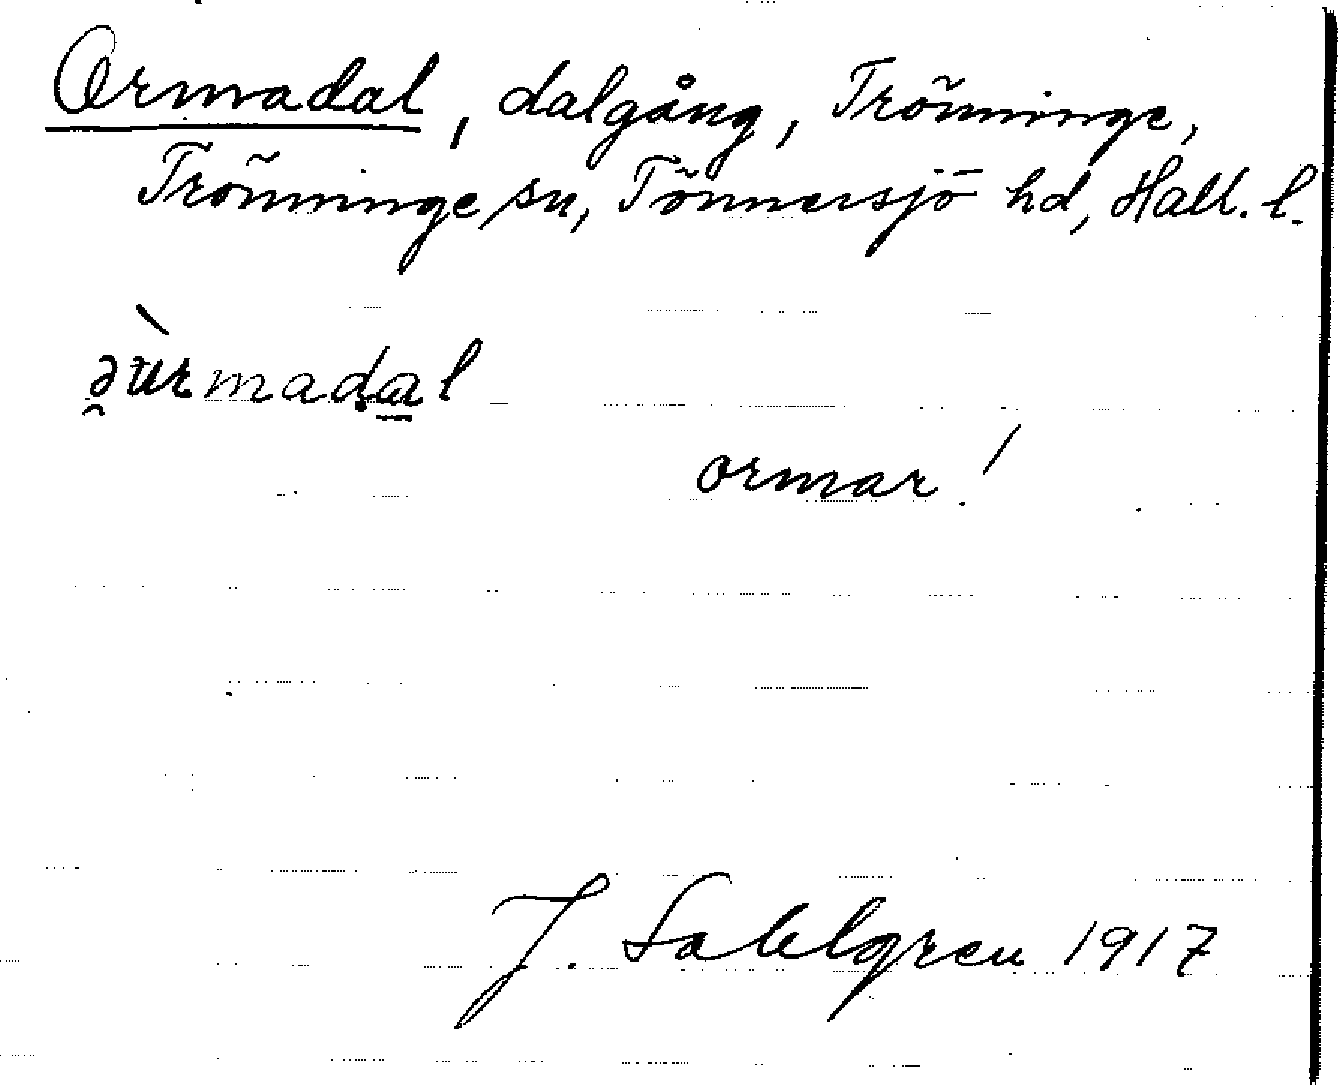 Ormadal, dalgång, Trönninge,
Trönninge sn, Tönnersjö hd, Hall. l.
ormar!
J. Sahlgren 1917